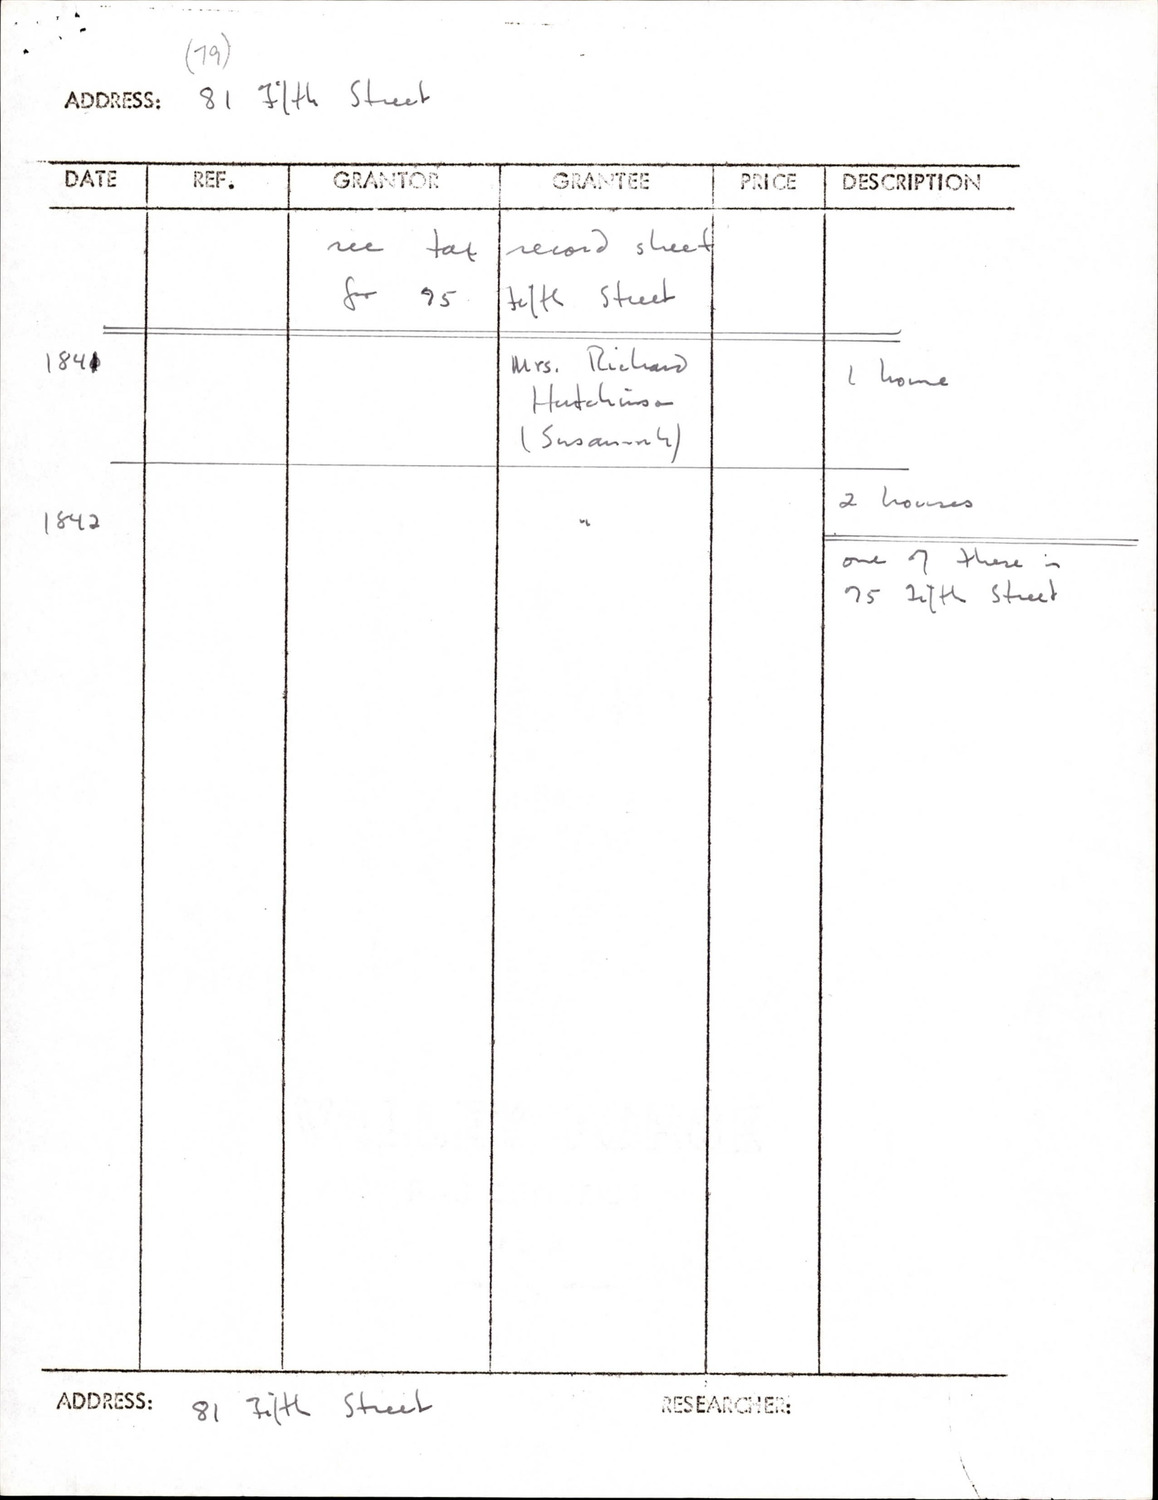 (79)
ADDRESS: 81 Fifth Street
DATE REF. GRANTOR GRANTEE PRICE DESCRIPTION
see tax record sheet
for 75 Fifth Street
1841 Mrs. Richard 1 house
Hutchinson
(Susannah)
1842 " 2 houses
one of these is
75 Fifth Street
ADDRESS: 81 Fifth Street RESEARCHER: